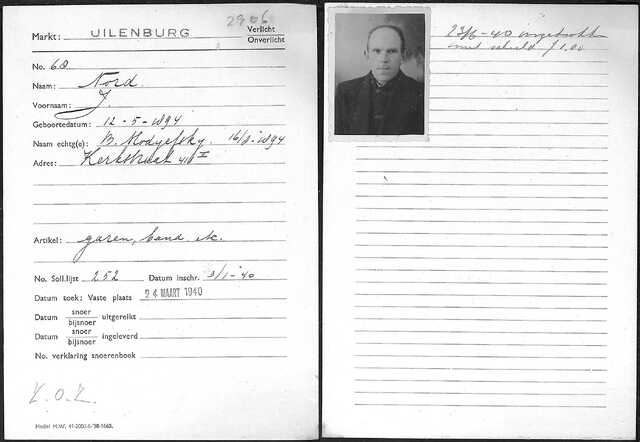 2906
Markt: UILENBURG Verlicht
Onverlicht
No. 60
Naam: Nord
Voornaam: J.
Geboortedatum: 12-5-1894
Naam echtg(e): B. 16/8-1894
Adres: Kerkstraat 410 I
Artikel: garen, band etc.
No. Soll.lijst 252 Datum inschr. 3/1-40
Datum toek: Vaste plaats 24 MAART 1940
Datum snoer
bijsnoer uitgereikt
Datum snoer
bijsnoer ingeleverd
No. verklaring snoerenboek
K.O.K.
Model M.W. 41-2000-6-'38-1663.
23/6-40
met schuld f 1.00